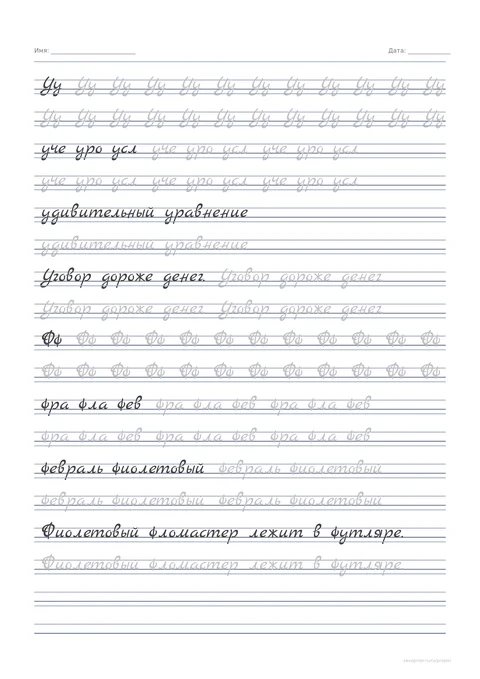 Имя: Дата:
Уу Уу Уу Уу Уу Уу Уу Уу Уу Уу Уу Уу
Уу Уу Уу Уу Уу Уу Уу Уу Уу Уу Уу Уу
уче уро усл уче уро усл уче уро усл
уче уро усл уче уро усл уче уро усл
удивительный уравнение
удивительный уравнение
Уговор дороже денег. Уговор дороже денег
Уговор дороже денег Уговор дороже денег
Фф Фф Фф Фф Фф Фф Фф Фф Фф Фф Фф Фф
Фф Фф Фф Фф Фф Фф Фф Фф Фф Фф Фф Фф
фра фла фев фра фла фев фра фла фев
фра фла фев фра фла фев фра фла фев
февраль фиолетовый февраль фиолетовый
февраль фиолетовый февраль фиолетовый
Фиолетовый фломастер лежит в футляре.
Фиолетовый фломастер лежит в футляре